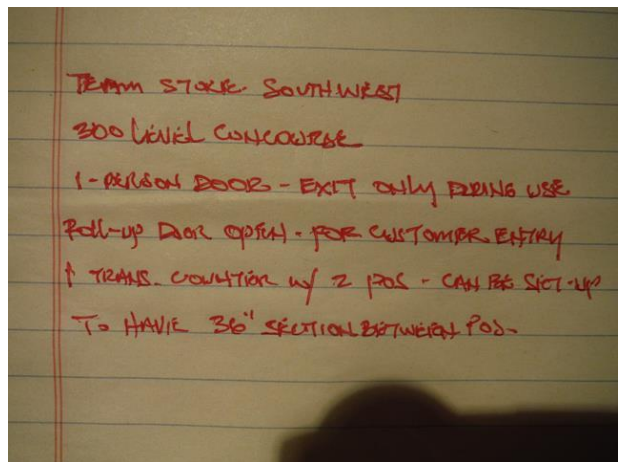 TEAM STORE - SOUTHWEST
300 LEVEL CONCOURSE
1 - PERSON DOOR - EXIT ONLY DURING USE
ROLL-UP DOOR OPEN - FOR CUSTOMER ENTRY
1 TRANS. COUNTER W/ 2 POS - CAN BE SET-UP
TO HAVE 36" SECTION BETWEEN POS -